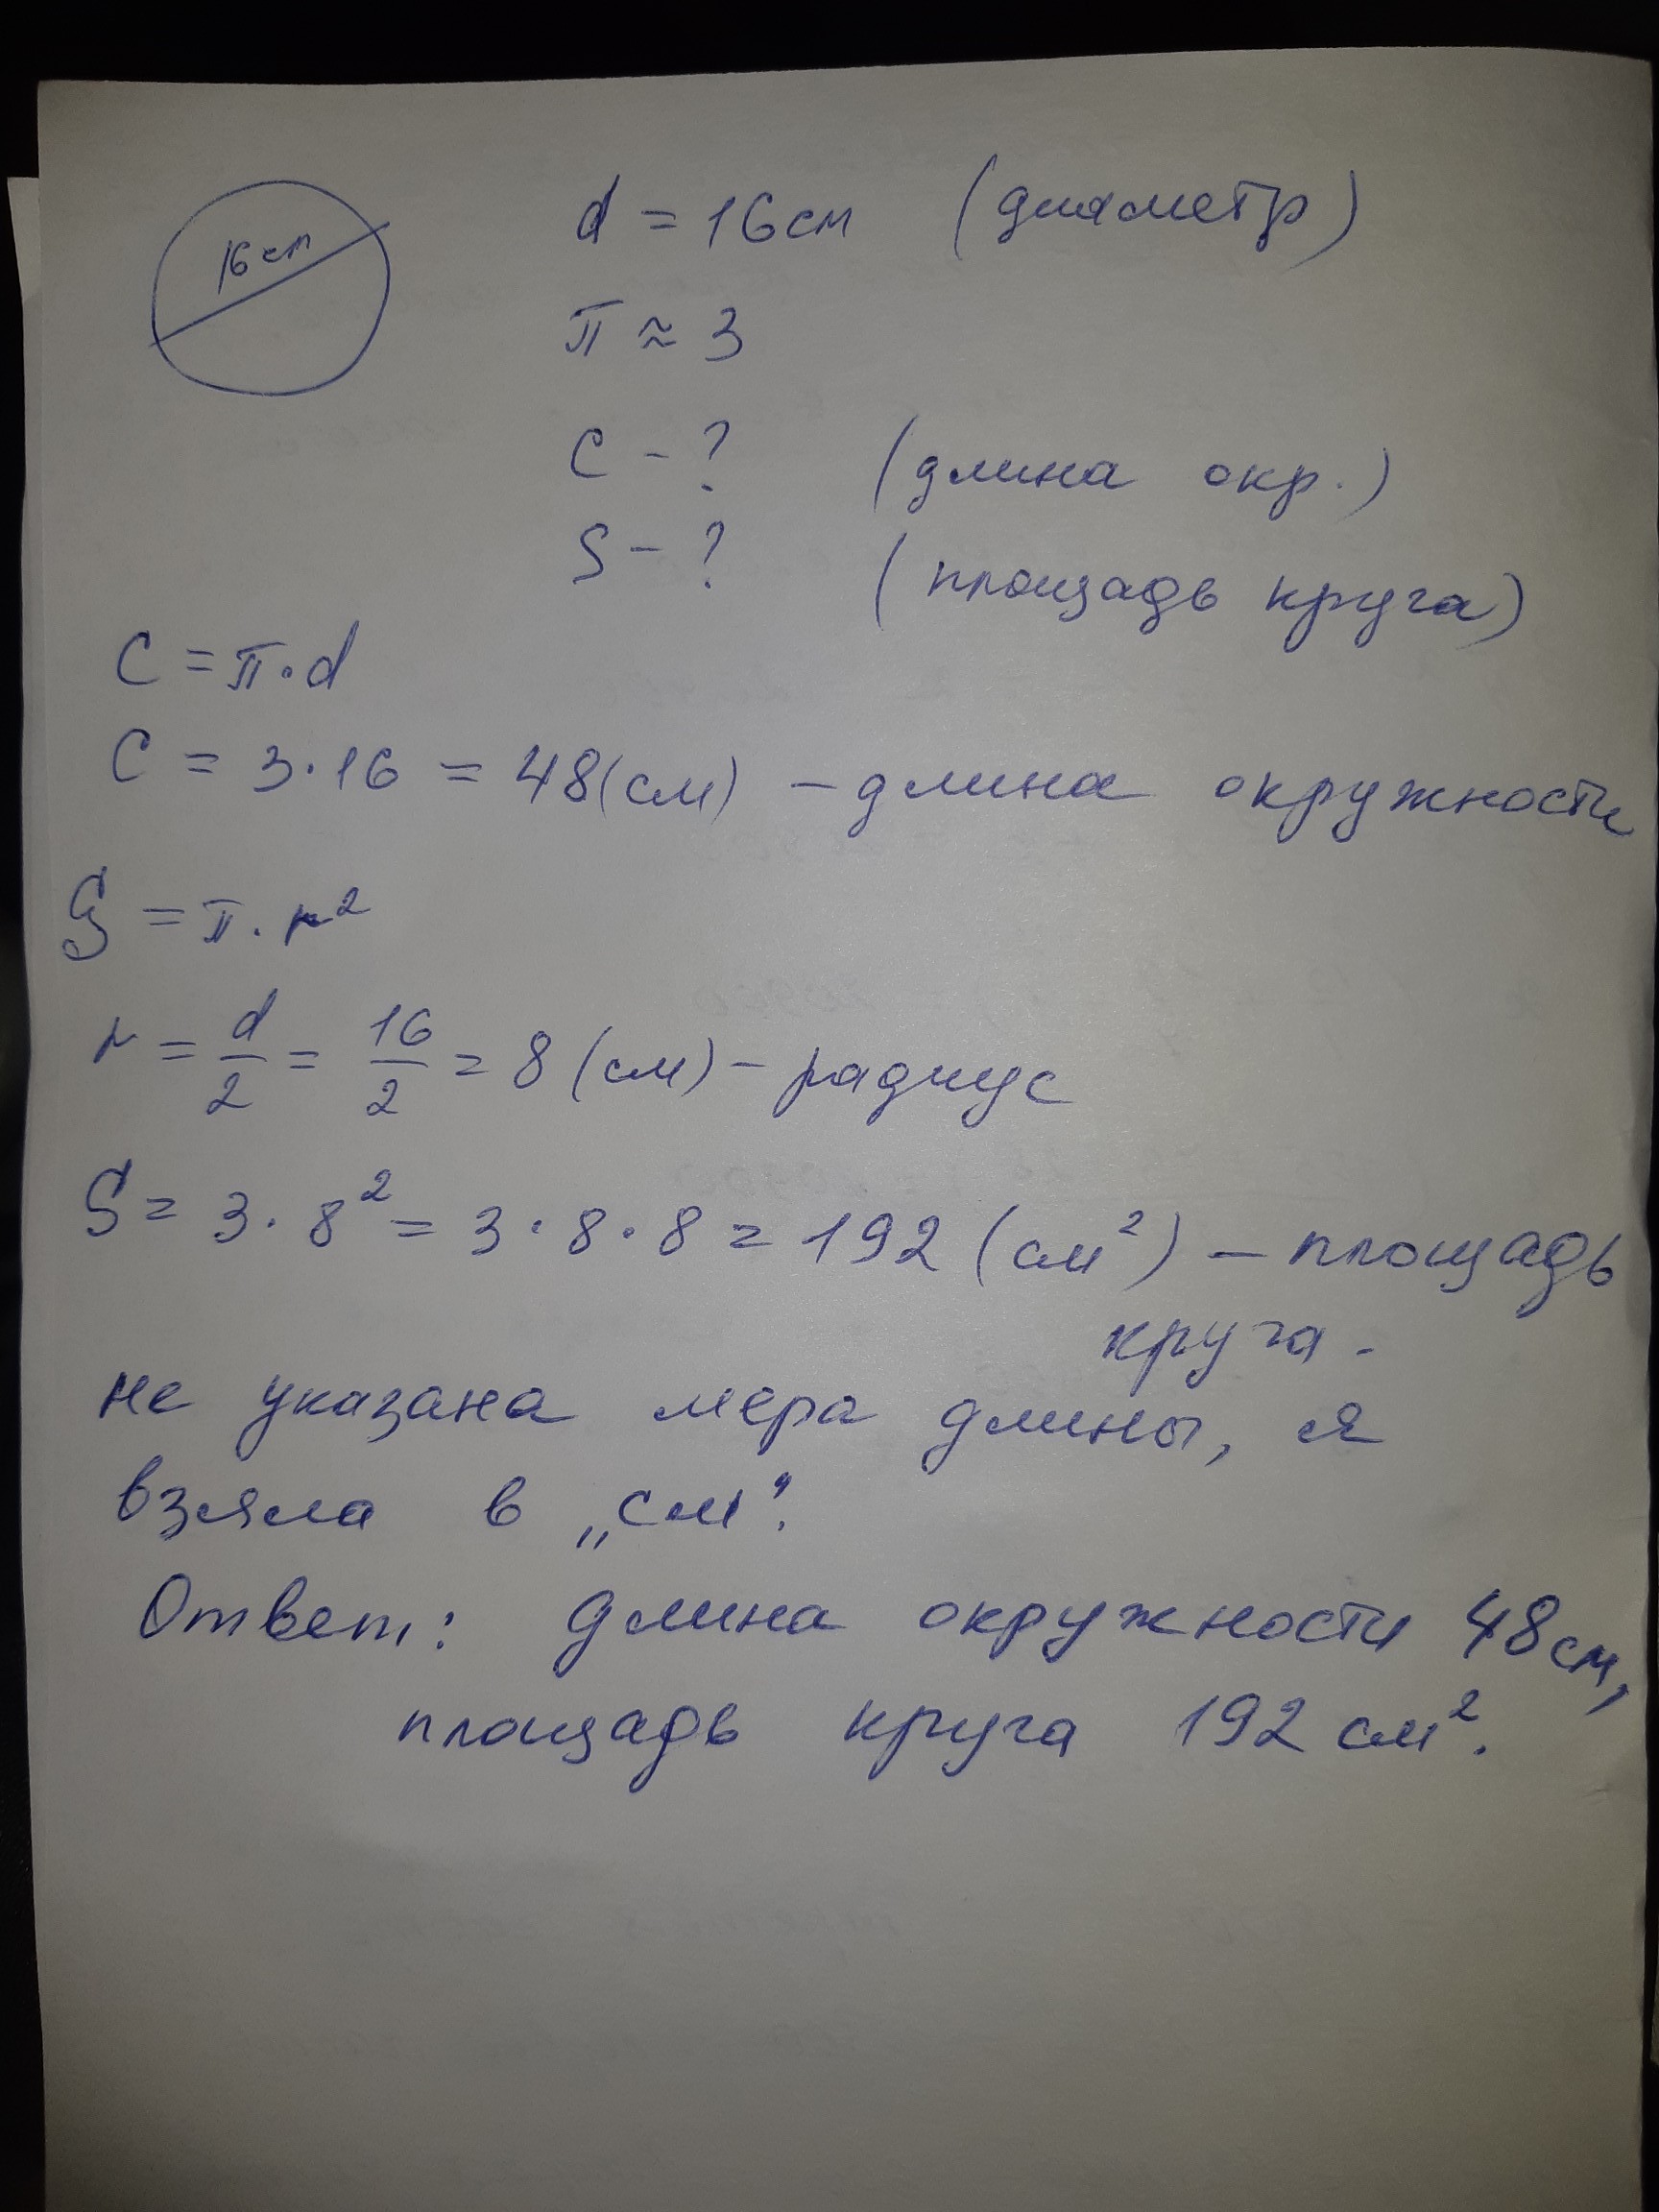 16 см
d = 16 см (диаметр)
π ≈ 3
C - ? (длина окр.)
S - ? (площадь круга)
C = π · d
C = 3 · 16 = 48 (см) – длина окружности
S = π · r²
r = d/2 = 16/2 = 8 (см) – радиус
S = 3 · 8² = 3 · 8 · 8 = 192 (см²) – площадь
круга.
не указана мера длины, я
взяла в „см".
Ответ: длина окружности 48 см,
площадь круга 192 см².